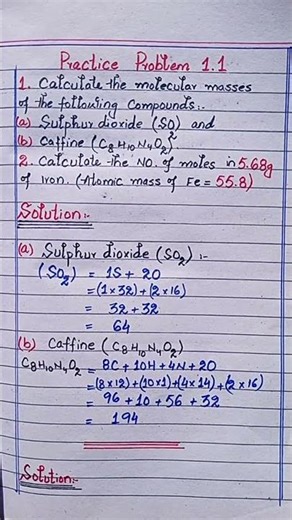 Practice Problem 1.1
1. Calculate the molecular masses
of the following compounds:-
(a) Sulphur dioxide (SO) and
2
(b) Caffine (C8H10N4O2)
2. Calculate the NO. of moles in 5.68g
of Iron. (Atomic mass of Fe = 55.8)
Solution:-
(a) Sulphur dioxide (SO2) :-
(SO2) = 1S + 2O
= (1 × 32) + (2 × 16)
= 32 + 32
= 64
(b) Caffine (C8H10N4O2)
C8H10N4O2 = 8C + 10H + 4N + 2O
= (8 × 12) + (10 × 1) + (4 × 14) + (2 × 16)
= 96 + 10 + 56 + 32
= 194
Solution:-